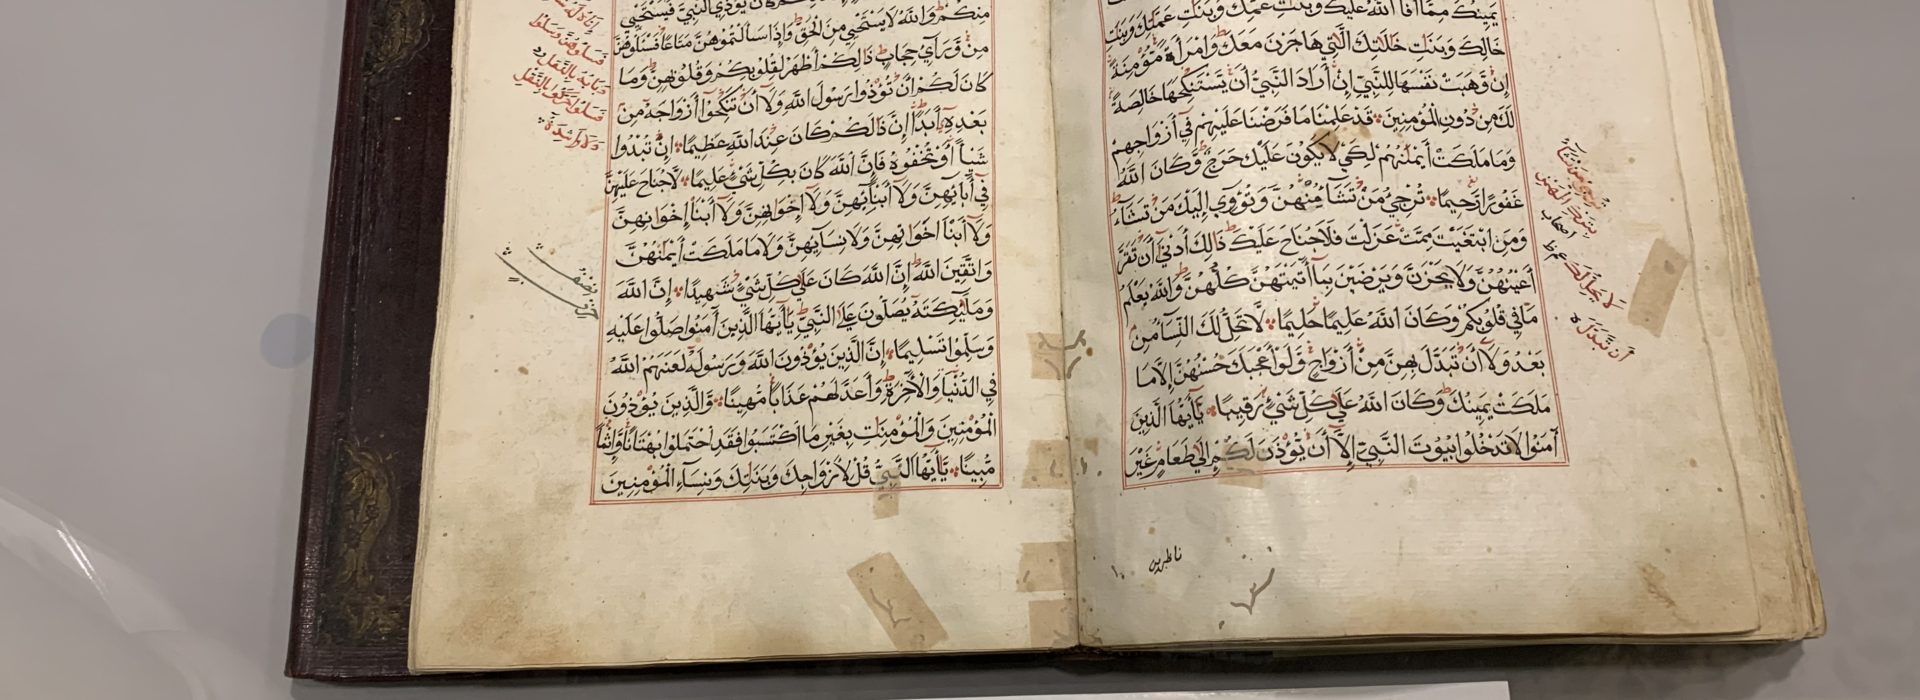 يَمِينُكَ مِمَّا أَفَاءَ اللَّهُ عَلَيْكَ وَبَنَاتِ عَمِّكَ وَبَنَاتِ عَمَّاتِكَ وَبَنَاتِ
خَالِكَ وَبَنَاتِ خَالَتِكَ الَّتِي هَاجَرْنَ مَعَكَ وَامْرَأَةً مُؤْمِنَةً
إِنْ وَهَبَتْ نَفْسَهَا لِلنَّبِيِّ إِنْ أَرَادَ النَّبِيُّ أَنْ يَسْتَنْكِحَهَا خَالِصَةً
لَكَ مِنْ دُونِ الْمُؤْمِنِينَ قَدْ عَلِمْنَا مَا فَرَضْنَا عَلَيْهِمْ فِي أَزْوَاجِهِمْ
وَمَا مَلَكَتْ أَيْمَنُهُمْ لِكَيْ لَا يَكُونَ عَلَيْكَ حَرَجٌ وَكَانَ اللَّهُ
غَفُورًا رَحِيمًا تُرْجِي مَنْ تَشَاءُ مِنْهُنَّ وَتُؤْوِي إِلَيْكَ مَنْ تَشَاءُ
وَمَنِ ابْتَغَيْتَ مِمَّنْ عَزَلْتَ فَلَا جُنَاحَ عَلَيْكَ ذَالِكَ أَدْنَى أَنْ تَقَرَّ
أَعْيُنُهُنَّ وَلَا يَحْزَنَّ وَيَرْضَيْنَ بِمَا أَتَيْتَهُنَّ كُلُّهُنَّ وَاللَّهُ يَعْلَمُ
مَا فِي قُلُوبِكُمْ وَكَانَ اللَّهُ عَلِيمًا حَلِيمًا لَا تَحِلُّ لَكَ النِّسَاءُ مِنْ
بَعْدُ وَلَا أَنْ تَبَدَّلَ بِهِنَّ مِنْ أَزْوَاجٍ وَلَوْ أَعْجَبَكَ حُسْنُهُنَّ إِلَّا مَا
مَلَكَتْ يَمِينُكَ وَكَانَ اللَّهُ عَلَى كُلِّ شَيْءٍ رَقِيبًا يَأَيُّهَا الَّذِينَ
آمَنُوا لَا تَدْخُلُوا بُيُوتَ النَّبِيِّ إِلَّا أَنْ يُؤْذَنَ لَكُمْ إِلَى طَعَامٍ غَيْرَ
ناظرين
لا يحل لك
أن تبدل
مِنْكُمْ وَاللَّهُ لَا يَسْتَحْيِي مِنَ الْحَقِّ وَإِذَا سَأَلْتُمُوهُنَّ مَتَاعًا فَسْئَلُوهُنَّ
مِنْ وَرَآءِ حِجَابٍ ذَالِكُمْ أَطْهَرُ لِقُلُوبِكُمْ وَقُلُوبِهِنَّ وَمَا
كَانَ لَكُمْ أَنْ تُؤْذُوا رَسُولَ اللَّهِ وَلَا أَنْ تَنْكِحُوا أَزْوَاجَهُ مِنْ
بَعْدِهِ أَبَدًا إِنَّ ذَالِكُمْ كَانَ عِنْدَ اللَّهِ عَظِيمًا إِنْ تُبْدُوا
شَيْئًا أَوْ تُخْفُوهُ فَإِنَّ اللَّهَ كَانَ بِكُلِّ شَيْءٍ عَلِيمًا لَا جُنَاحَ عَلَيْهِنَّ
فِي آبَائِهِنَّ وَلَا أَبْنَائِهِنَّ وَلَا إِخْوَانِهِنَّ وَلَا أَبْنَاءِ إِخْوَانِهِنَّ
وَلَا أَبْنَاءِ أَخَوَاتِهِنَّ وَلَا نِسَائِهِنَّ وَلَا مَا مَلَكَتْ أَيْمَنُهُنَّ
وَاتَّقِينَ اللَّهَ إِنَّ اللَّهَ كَانَ عَلَى كُلِّ شَيْءٍ شَهِيدًا إِنَّ اللَّهَ
وَمَلَئِكَتَهُ يُصَلُّونَ عَلَى النَّبِيِّ يَأَيُّهَا الَّذِينَ آمَنُوا صَلُّوا عَلَيْهِ
وَسَلِّمُوا تَسْلِيمًا إِنَّ الَّذِينَ يُؤْذُونَ اللَّهَ وَرَسُولَهُ لَعَنَهُمُ اللَّهُ
فِي الدُّنْيَا وَالْآخِرَةِ وَأَعَدَّ لَهُمْ عَذَابًا مُهِينًا وَالَّذِينَ يُؤْذُونَ
الْمُؤْمِنِينَ وَالْمُؤْمِنَاتِ بِغَيْرِ مَا اكْتَسَبُوا فَقَدِ احْتَمَلُوا بُهْتَانًا وَإِثْمًا
مُبِينًا يَأَيُّهَا النَّبِيُّ قُلْ لِأَزْوَاجِكَ وَبَنَاتِكَ وَنِسَاءِ الْمُؤْمِنِينَ